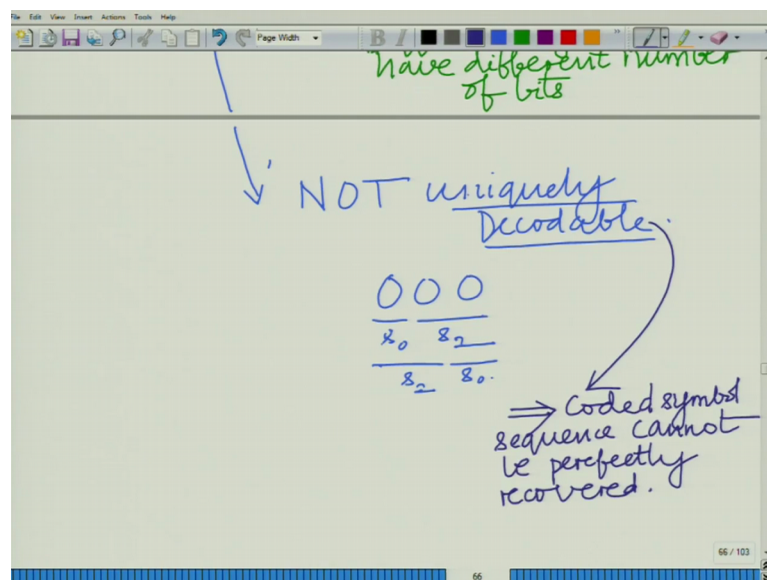 File Edit View Insert Actions Tools Help
Page Width
have different number
of bits
NOT uniquely
Decodable.
0 0 0
s₀ s₂
s₂ s₀.
⇒ Coded symbol
sequence cannot
be perfectly
recovered.
66 / 103
66